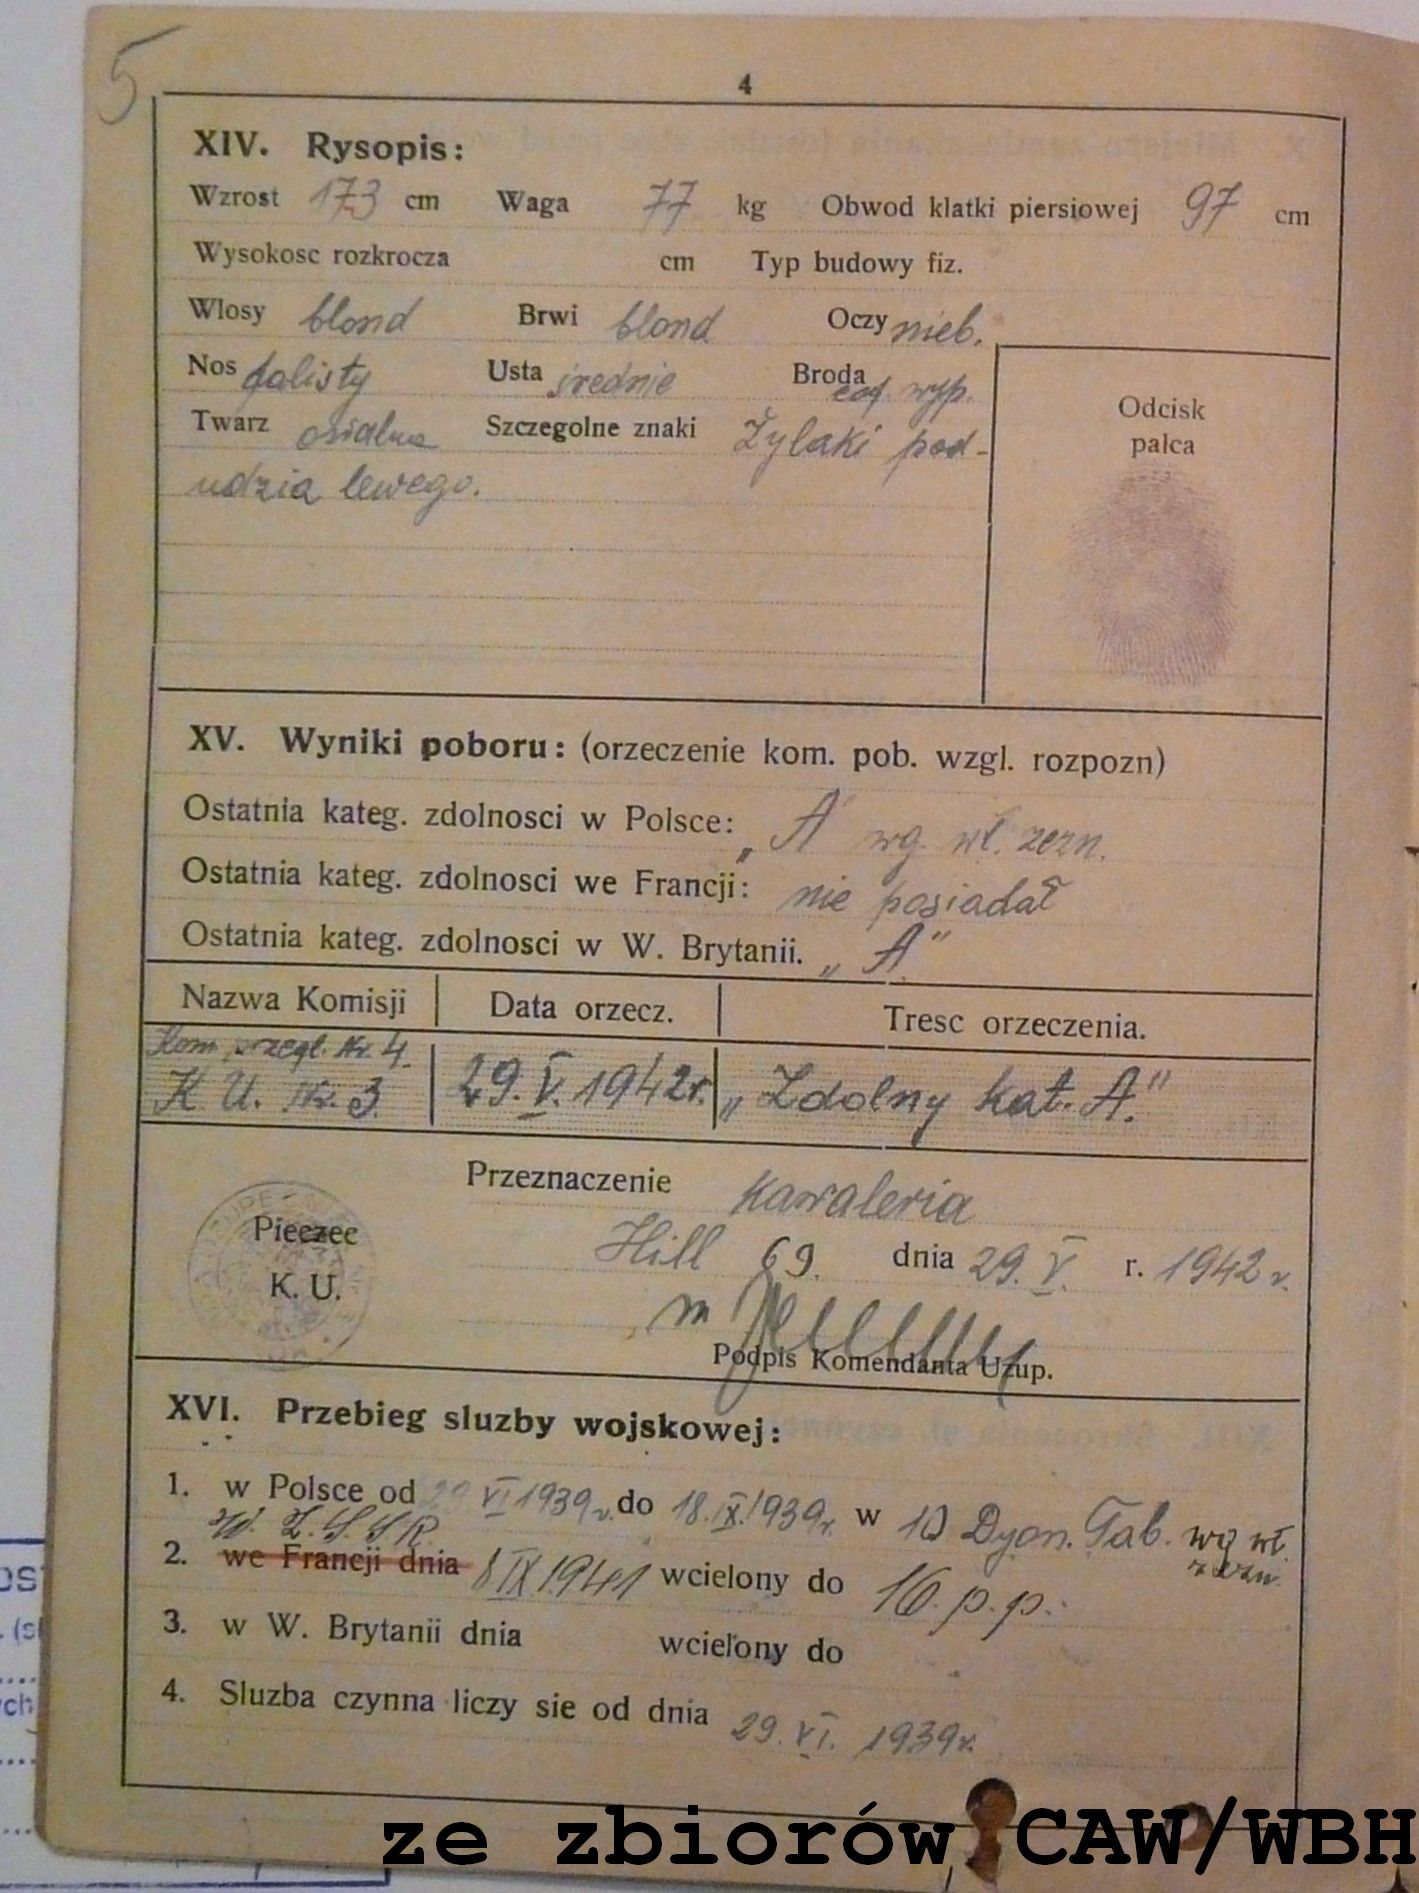 5
4
XIV. Rysopis:
Wzrost 173 cm Waga 77 kg Obwod klatki piersiowej 97 cm
Wysokosc rozkrocza cm Typ budowy fiz.
Wlosy blond Brwi blond Oczy nieb.
Nos falisty Usta średnie Broda cof. wyp.
Twarz owalna Szczegolne znaki Żylaki pod-
udzia lewego.
Odcisk
palca
XV. Wyniki poboru: (orzeczenie kom. pob. wzgl. rozpozn)
Ostatnia kateg. zdolnosci w Polsce: „A" wg. wł. zezn.
Ostatnia kateg. zdolnosci we Francji: nie posiadał
Ostatnia kateg. zdolnosci w W. Brytanii. „A"
Nazwa Komisji Data orzecz. Tresc orzeczenia.
Kom. przegl. Nr. 4
K. U. Nr. 3 29.V.1942r. „Zdolny kat. A."
Przeznaczenie kawaleria
Pieczec
K. U.
Hill 69. dnia 29. V. r. 1942 r.
Podpis Komendanta Uzup.
XVI. Przebieg sluzby wojskowej:
1. w Polsce od 29 VI 1939r. do 18.IX.1939r. w 10 Dyon. Tab. wg wł.
zezn.
W. Z.S.S.R.
2. we Francji dnia 8 IX 1941 wcielony do 16. p.p.
3. w W. Brytanii dnia wcielony do
4. Sluzba czynna liczy sie od dnia 29. VI. 1939r.
ze zbiorów CAW/WBH